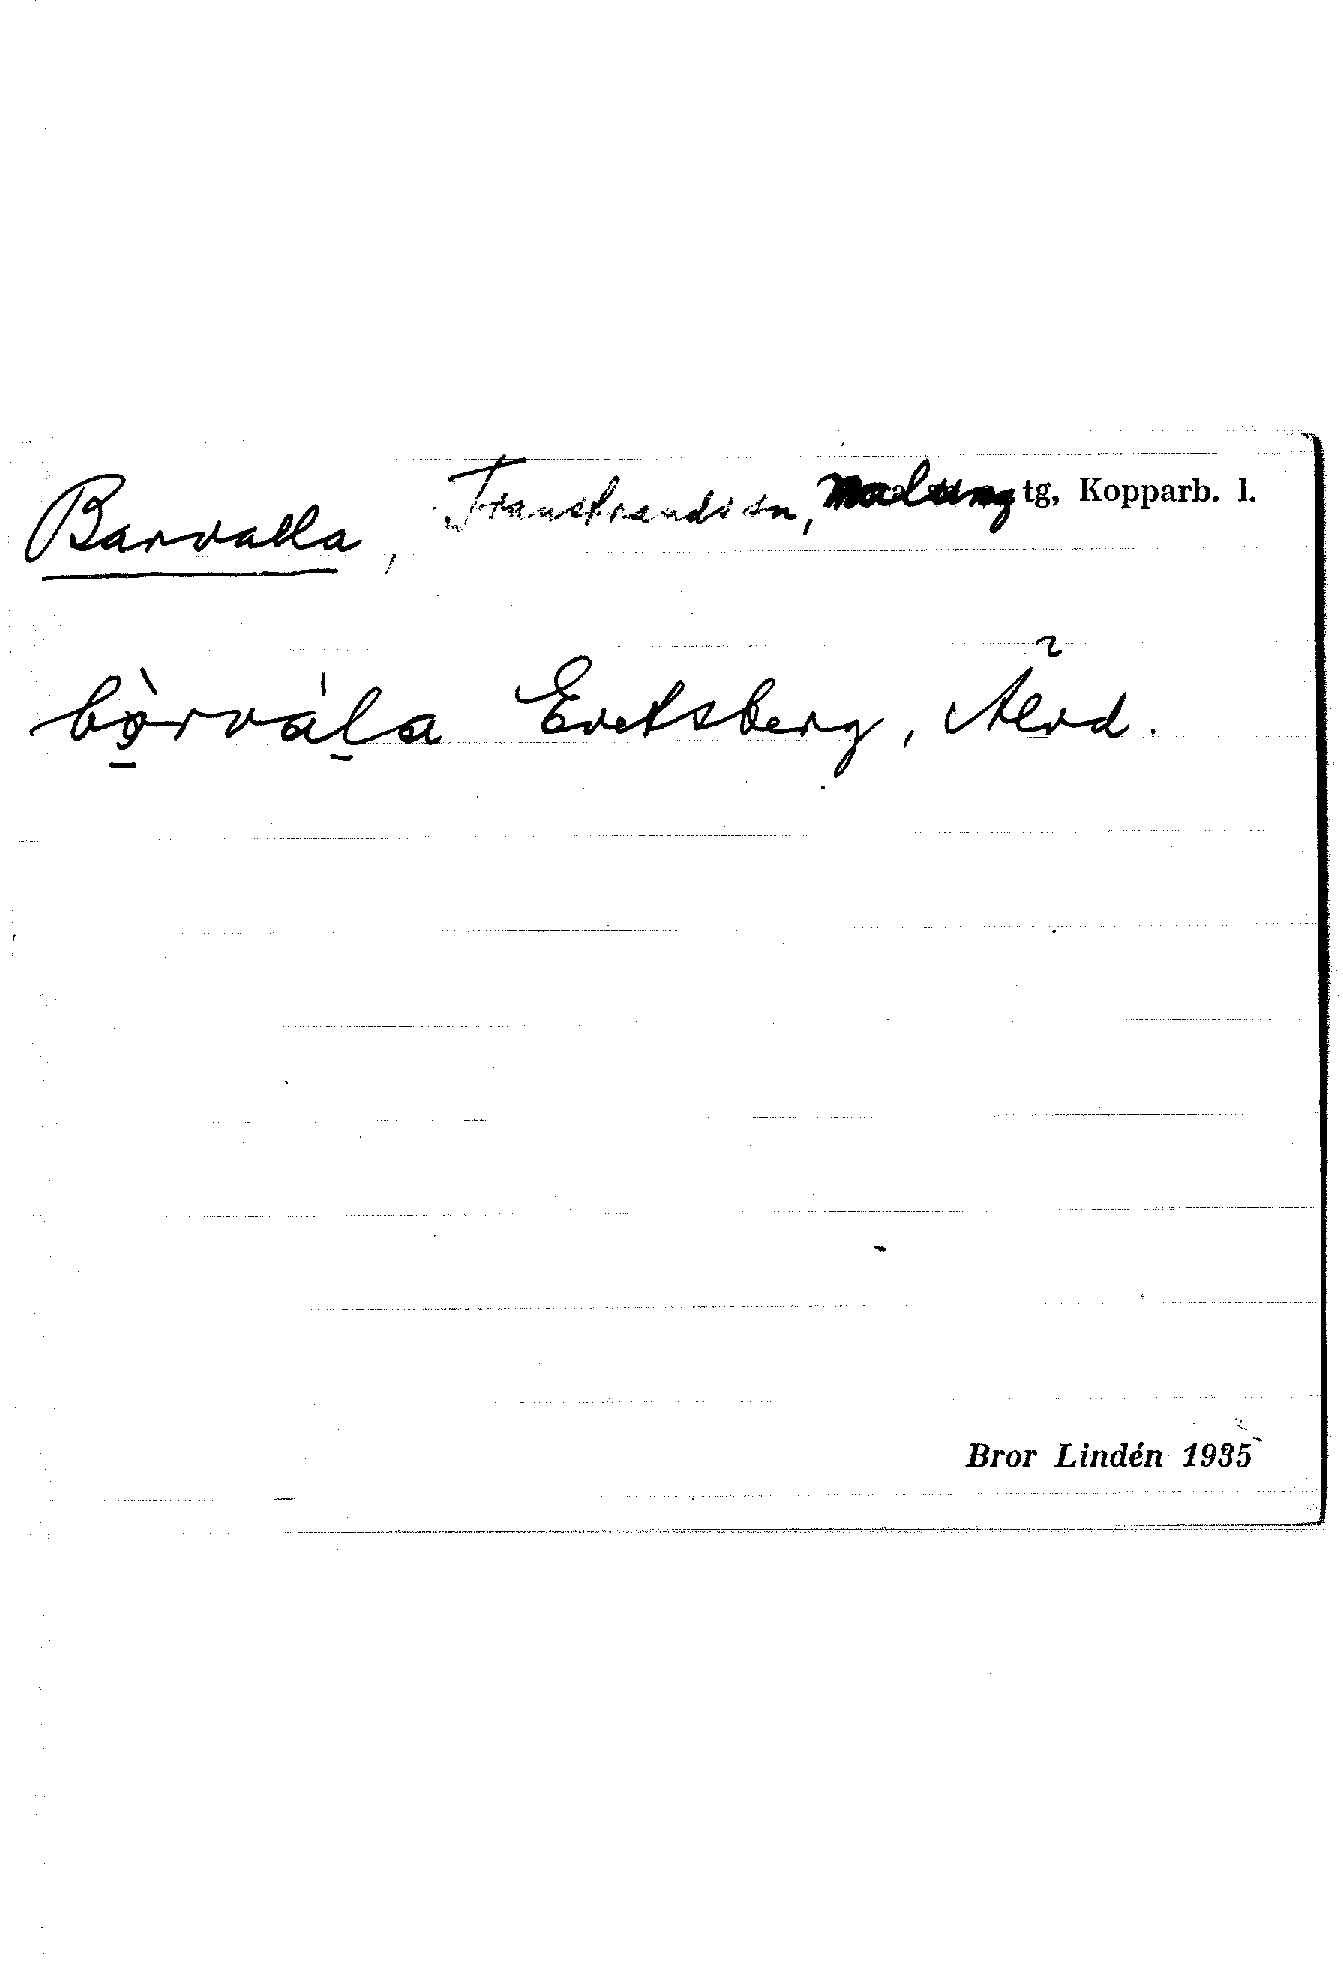 Barvalla, Transtrands sn, Malung tg, Kopparb. l.
bo̱̊̀rvál̠a Evertsberg, Älvd.
Bror Lindén 1935